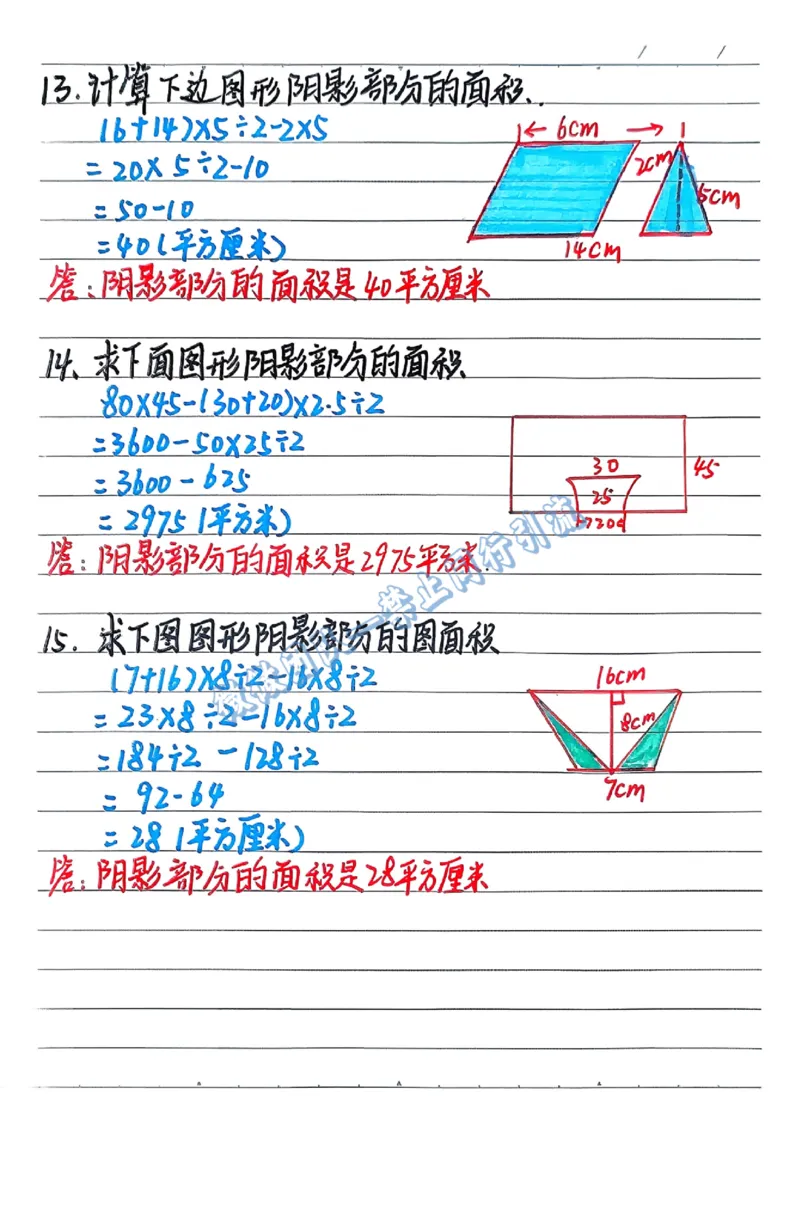 13.计算下边图形阴影部分的面积.
(6+14)×5÷2-2×5
=20×5÷2-10
=50-10
=40(平方厘米)
答:阴影部分的面积是40平方厘米
6cm
2cm
5cm
14cm
14、求下面图形阴影部分的面积
80×45-(30+20)×2.5÷2
=3600-50×25÷2
=3600-625
=2975(平方米)
答:阴影部分的面积是2975平方米.
30
45
25
15.求下图图形阴影部分的图面积
(7+16)×8÷2-16×8÷2
=23×8÷2-16×8÷2
=184÷2-128÷2
=92-64
=28(平方厘米)
答:阴影部分的面积是28平方厘米
16cm
8cm
7cm